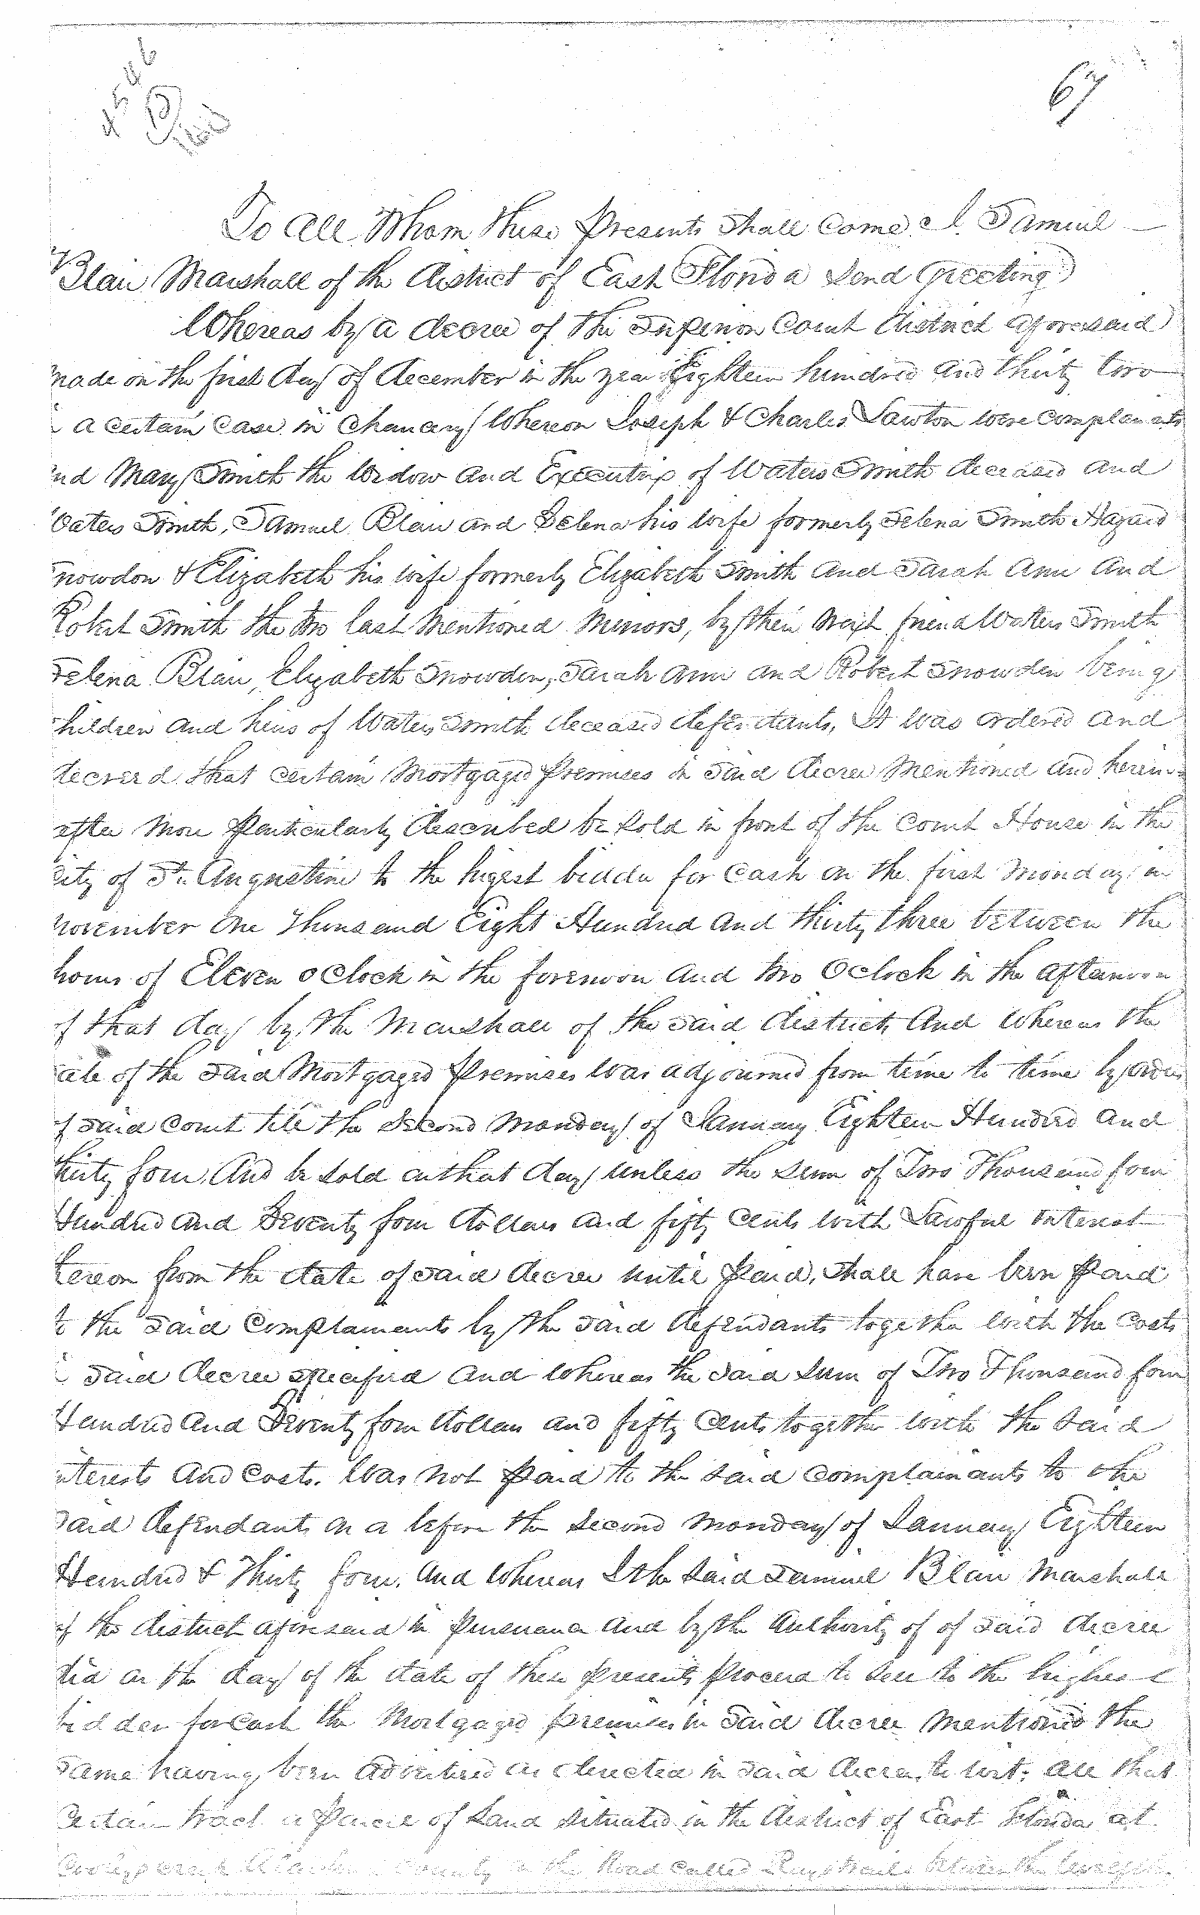 4546
Paid
67
To all Whom these Presents shall Come, I. Samuel
Blair Marshall of the district of East Florida Send Greeting
Whereas by a decree of the Superior Court district aforesaid
made on the first day of december in the year Eighteen hundred and thirty two
a certain Case in Chancery Whereon Joseph & Charles Lawton were complainants
nd Mary Smith the Widow and Executrix of Waters Smith deceased and
Waters Smith, Samuel Blair and Selena his wife formerly Selena Smith Hazard
Snowdon & Elizabeth his wife formerly Elizabeth Smith and Sarah Ann and
Robert Smith the two last Mentioned Minors, by their next friend Waters Smith
Selena Blair, Elizabeth Snowden, Sarah Ann and Robert Snowden being
hildren and heirs of Waters Smith deceased defendants, It was ordered and
decreed that certain Mortgaged Premises in Said decree Mentioned and herein
after More Particularly described be Sold in front of the Court House in the
City of St. Augustine to the higest bidder for Cash on the first Monday in
November One Thousand Eight Hundred and thirty three between the
hours of Eleven oClock in the forenoon and two OClock in the afternoon
of that day by the Marshall of the Said district, And Whereas the
ale of the Said Mortgaged Premises Was adjourned from time to time by order
of Said Court till the Second Monday of January Eighteen Hundred and
thirty four, And be Sold on that day unless the Sum of Two Thousand four
Hundred and Seventy four dollars and fifty Cents with Lawful interest
hereon from the date of Said decree until Paid, Shall have been Paid
to the Said Complainants by the Said defendants together with the Costs
Said decree specified and Whereas the Said Sum of Two Thousand four
Hundred and Seventy four dollars and fifty Cents together with the Said
nterests and Costs. Was not Paid to the Said Complainants to the
Said defendants on a before the Second Monday of January Eighteen
Hundred & Thirty four. And Whereas I the Said Samuel Blair Marshall
of the district aforesaid in Pursuance and by the Authority of of Said decree
did on the day of the date of these Presents Proceed to Sell to the highest
bidder for Cash the Mortgaged premises in Said decree Mentioned the
Same having been Advertised as directed in Said decree, to wit; All that
Certain tract or Parcel of Land Situated in the district of East Florida at
County on the Road called between the twelfth